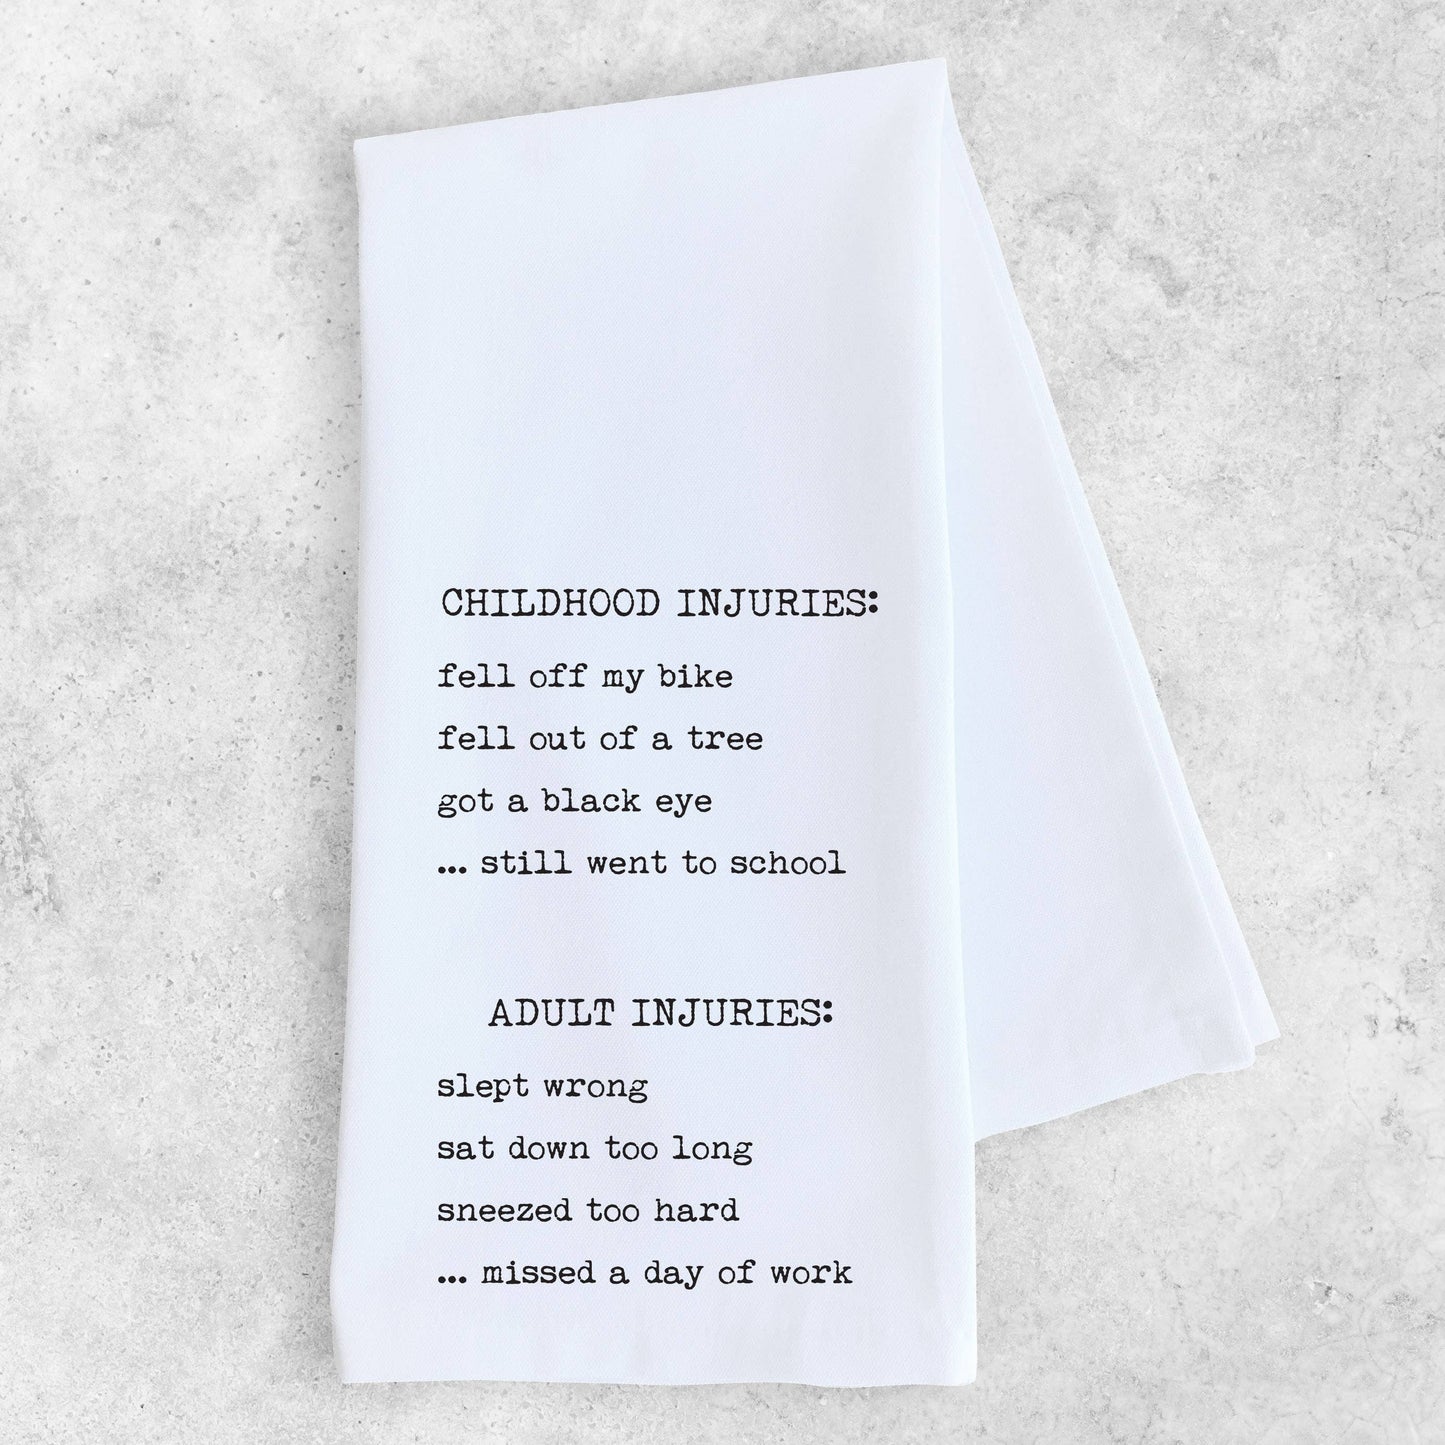 CHILDHOOD INJURIES:
fell off my bike
fell out of a tree
got a black eye
... still went to school
ADULT INJURIES:
slept wrong
sat down too long
sneezed too hard
... missed a day of work